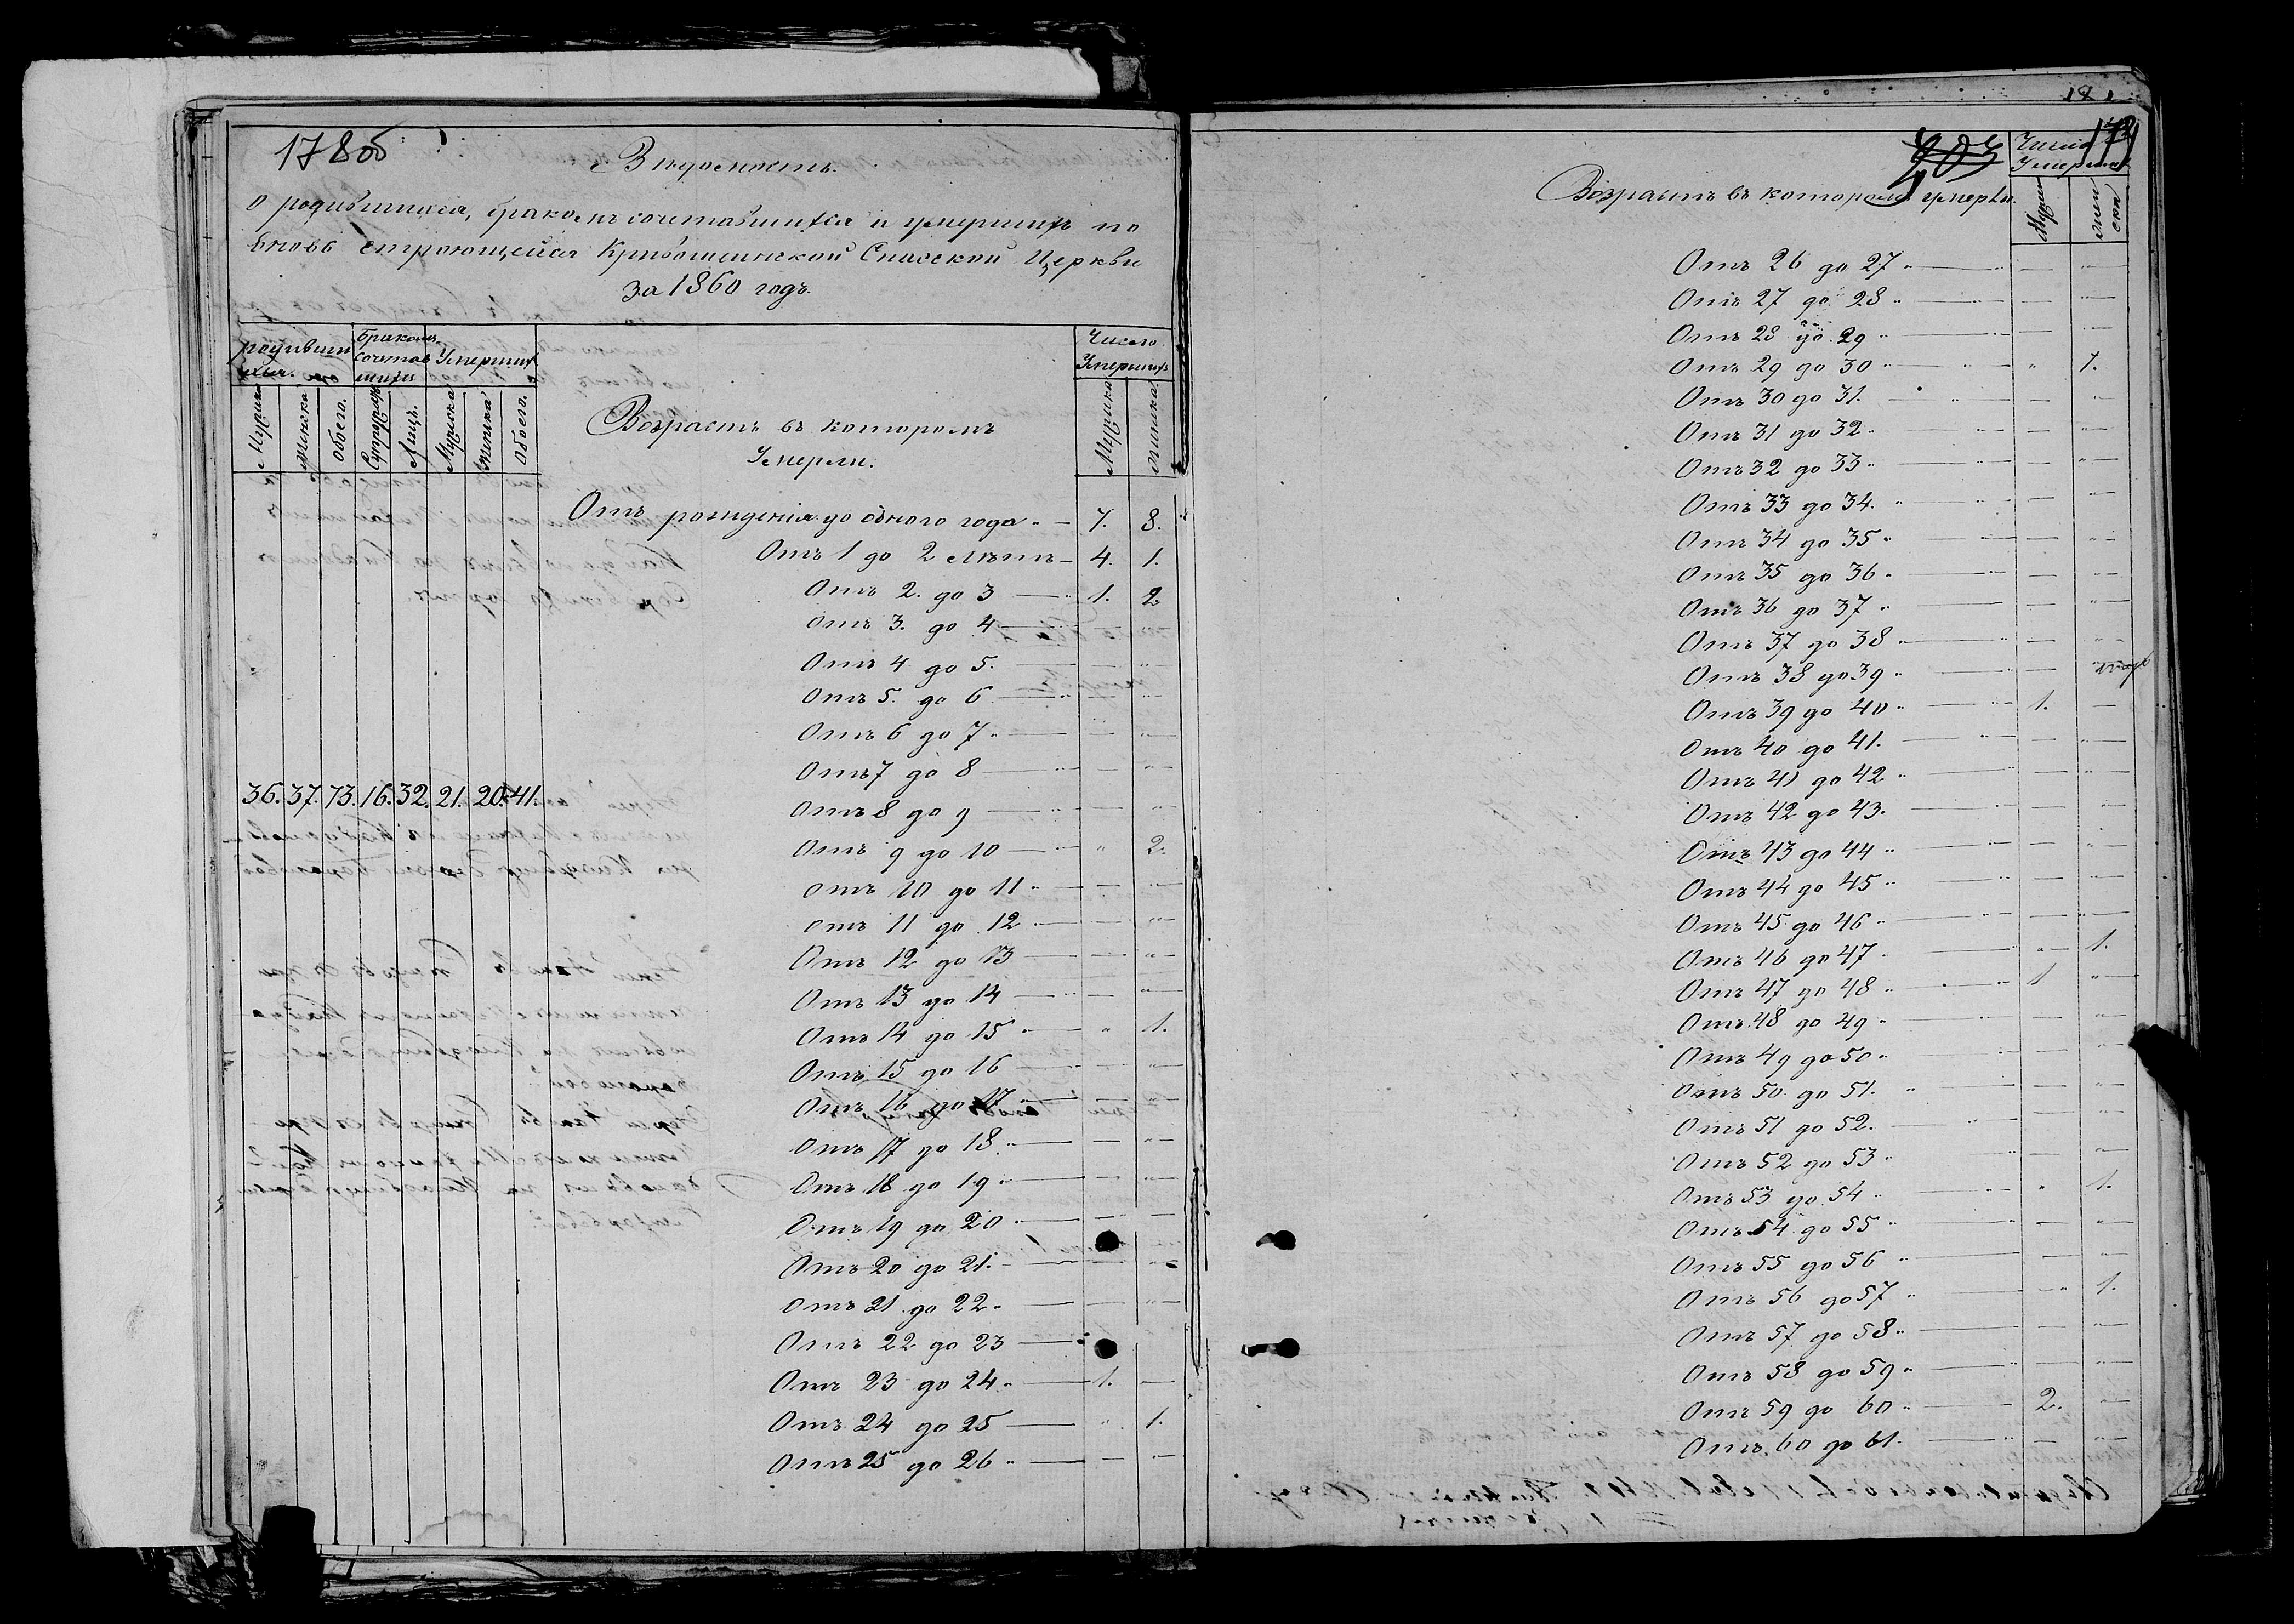 178 об
Вѣдомость
о родившихся, бракомъ сочетавшихся и умершихъ по
вновь строющейся Кривошинской Спасской Церкви
за 1860 годъ.
родивши
хся.
Бракомъ
сочетав
шихся
Умершихъ
Число
Умершихъ
Мужска
Женска
Обоего.
Супружеств
Лицъ.
Мужска
Женска
Обоего.
Возрастъ въ которомъ
Умерли.
Мужеска
Женска
36. 37. 73. 16. 32. 21. 20. 41.
Отъ рожденія до одного года " — 7. 8.
Отъ 1 до 2 лѣтъ — 4. 1.
Отъ 2. до 3 — 1. 2
Отъ 3. до 4 — "
Отъ 4 до 5. — "
Отъ 5. до 6 — "
Отъ 6 до 7 " — "
Отъ 7 до 8 — "
Отъ 8 до 9 — "
Отъ 9 до 10 — " 2.
Отъ 10 до 11 " — "
Отъ 11 до 12 " — "
Отъ 12 до 13 — "
Отъ 13 до 14 — "
Отъ 14 до 15 " — " 1.
Отъ 15 до 16 — "
Отъ 16 до 17 — "
Отъ 17 до 18 " — "
Отъ 18 до 19 " — "
Отъ 19 до 20 " —
Отъ 20 до 21. — "
Отъ 21 до 22 " — "
Отъ 22 до 23 —
Отъ 23 до 24 " — 1. —
Отъ 24 до 25 — " 1.
Отъ 25 до 26 " — "
Возрастъ въ которомъ умерли.
Число
Умершихъ
Мужск
Жен
ска
Отъ 26 до 27 " — "
Отъ 27 до 28 " — "
Отъ 28 до 29 " — "
Отъ 29 до 30 " — " 1.
Отъ 30 до 31. — "
Отъ 31 до 32 " — "
Отъ 32 до 33 " — "
Отъ 33 до 34. — "
Отъ 34 до 35 " — "
Отъ 35 до 36 " — "
Отъ 36 до 37 " — "
Отъ 37 до 38 " — "
Отъ 38 до 39 " —
Отъ 39 до 40 " — 1. —
Отъ 40 до 41. — "
Отъ 41 до 42 " — "
Отъ 42 до 43. — "
Отъ 43 до 44 " — "
Отъ 44 до 45 " — "
Отъ 45 до 46 " — "
Отъ 46 до 47 " — " 1.
Отъ 47 до 48 " — 1 "
Отъ 48 до 49 " — "
Отъ 49 до 50 " — "
Отъ 50 до 51. " — "
Отъ 51 до 52. — "
Отъ 52 до 53 " — "
Отъ 53 до 54 " — " 1.
Отъ 54 до 55 " — "
Отъ 55 до 56 " — "
Отъ 56 до 57 " — " 1.
Отъ 57 до 58 " — "
Отъ 58 до 59 " — "
Отъ 59 до 60 " — 2. "
Отъ 60 до 61. — "